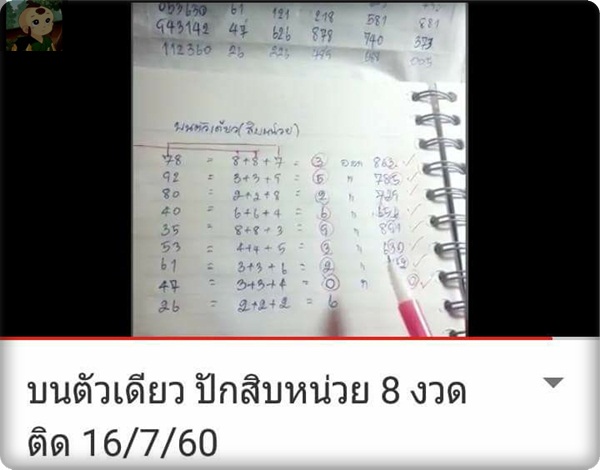 053630 61 121 218 581 881
943142 47 626 878 740 373
112360 26 226
บนตัวเดียว(สิบหน่วย)
78 = 8+8+7 = 3 ออก 863 ✓
92 = 3+3+9 = 5 " 785 ✓
80 = 2+2+8 = 2 " 729 ✓
40 = 6+6+4 = 6 " 656 ✓
35 = 8+8+3 = 9 " 891 ✓
53 = 4+4+5 = 3 " 630 ✓
61 = 3+3+6 = 2 "
47 = 3+3+4 = 0 " 0 ✓
26 = 2+2+2 = 6
บนตัวเดียว ปักสิบหน่วย 8 งวด
ติด 16/7/60